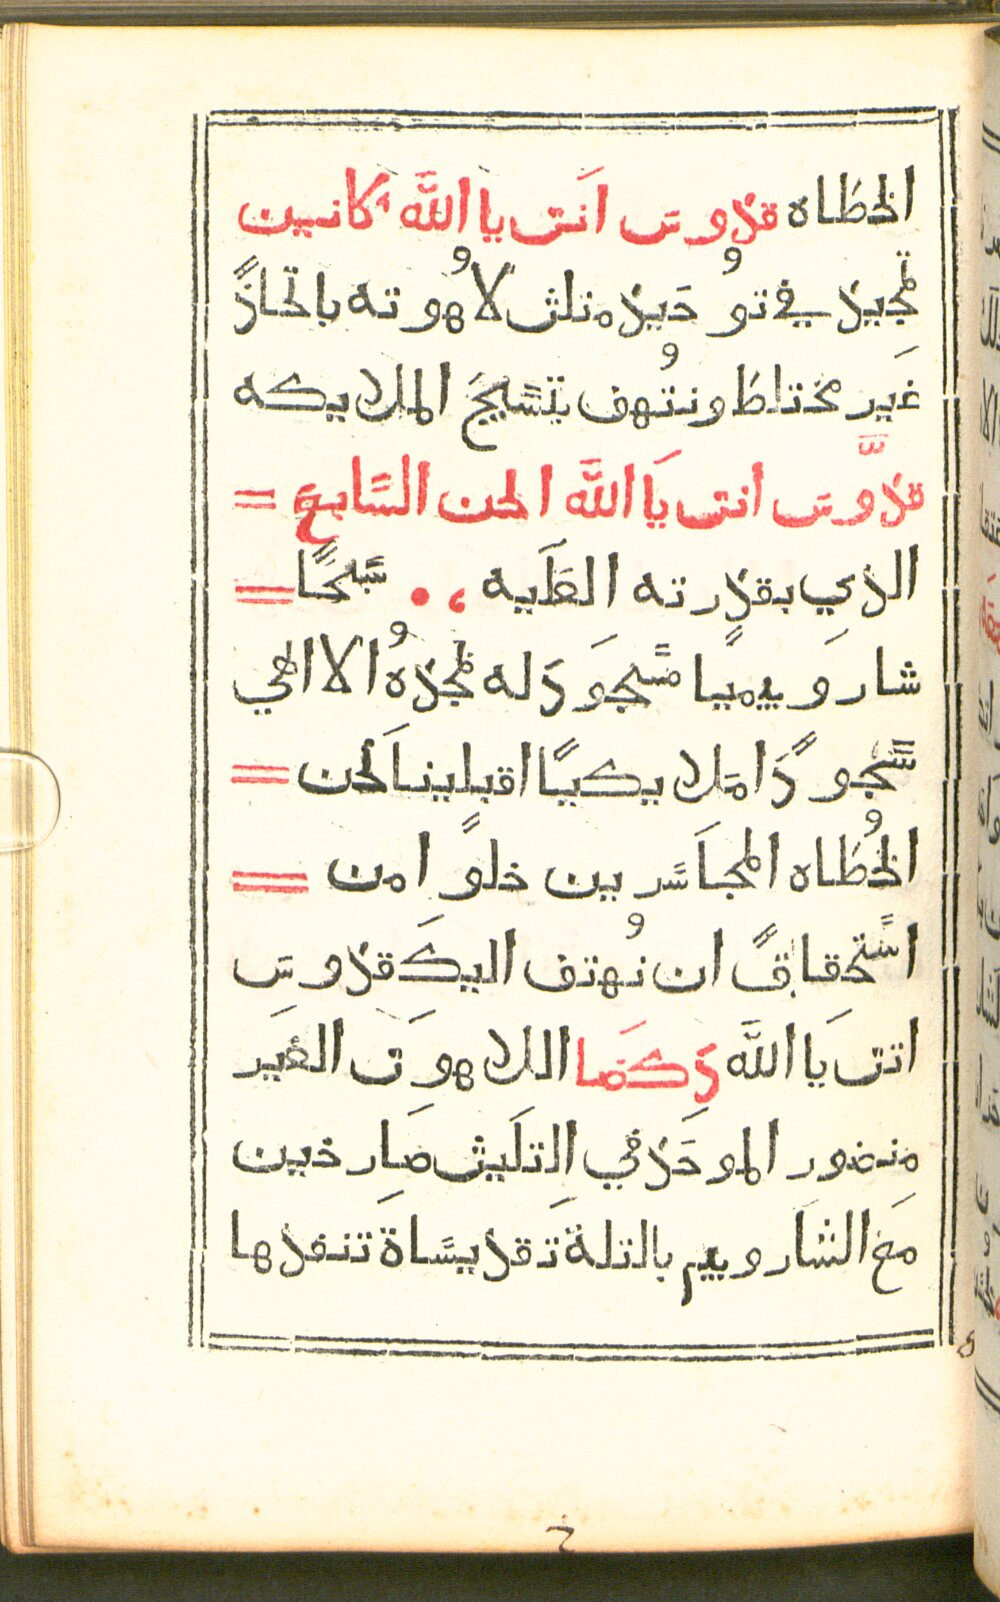 الخطاه قدوس انت يا الله كانين
تمجيد في توحيد متلث لاهوته باتحاد
غير مختلط ونتهف بتسبيح الملايكه
قدوس انت يا الله الحن السابع =
الذي بقدرته العليه ، . سبحا =
شاروبيميا مسجود له لمجده الالاهي
سجودا ملايكيا اقبلينا نحن =
الخطاه المجاسرين خلوا من =
استحقاق ان نهتف اليك قدوس
انت يا الله دكصا اللاهوت الغير
منضور الموحد في التليث صارخين
مع الشاروبيم بالتلة تقديساة تنفدها